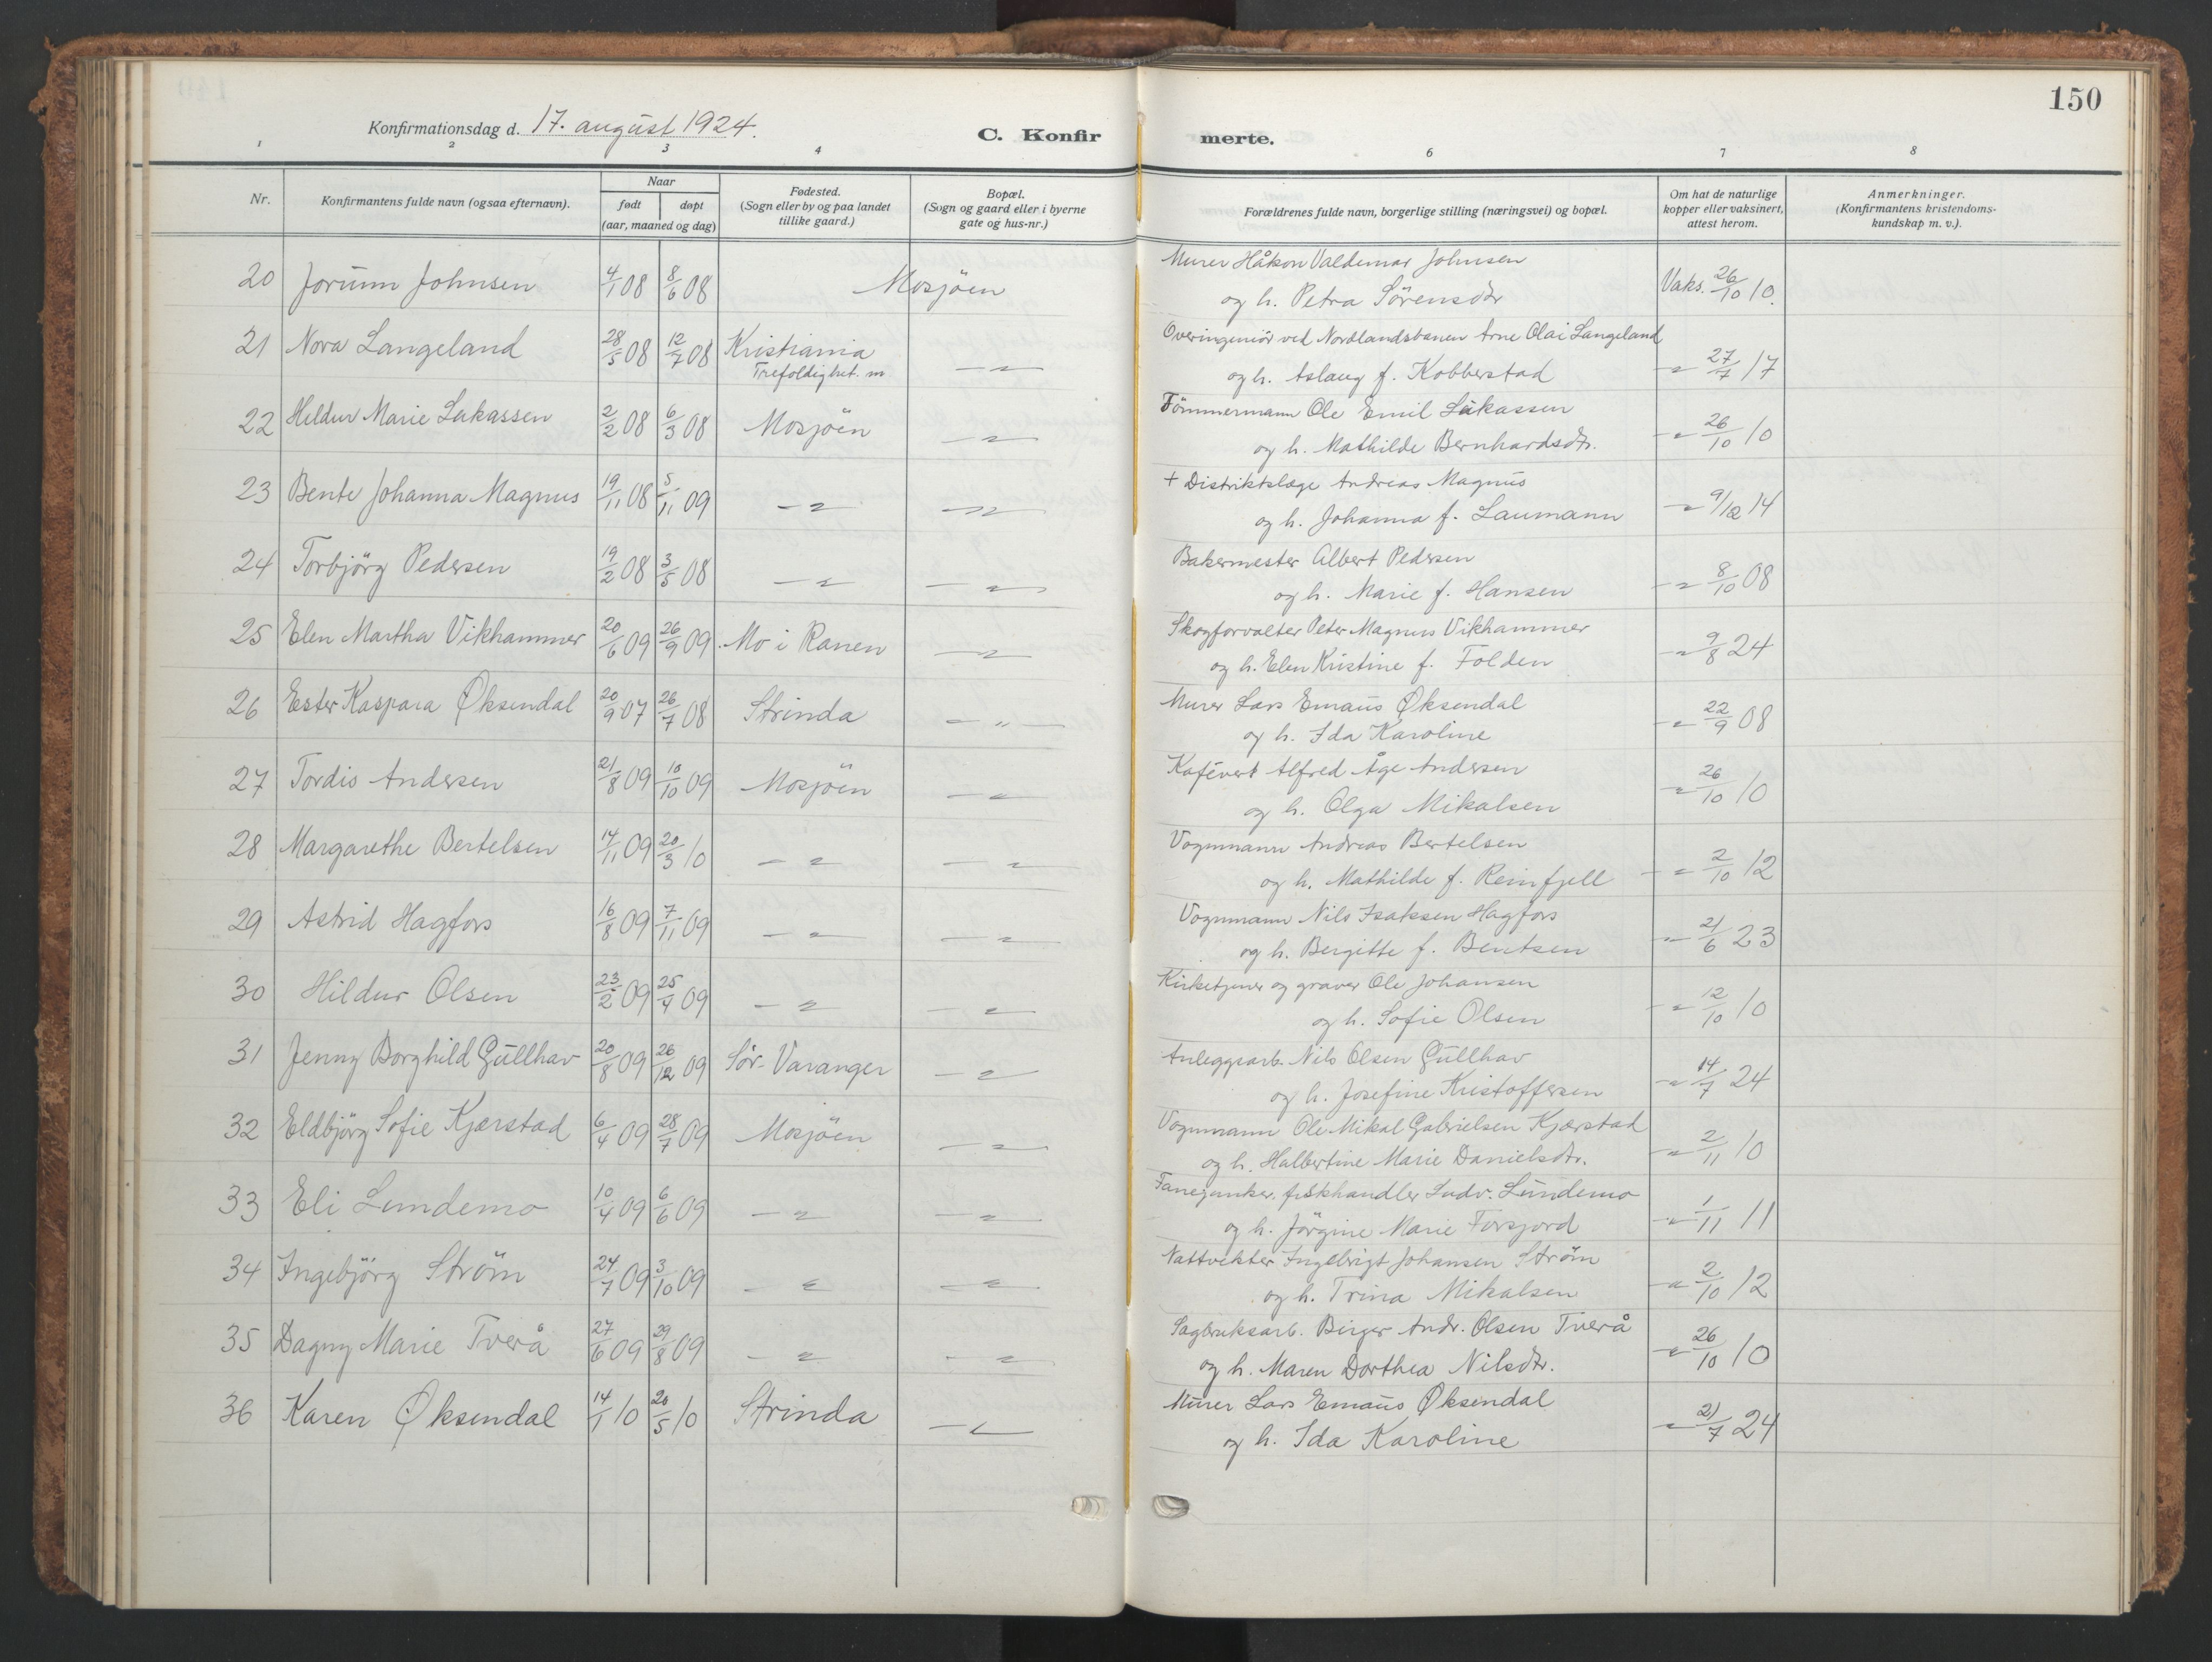 150
Konfirmationsdag d. 17. august 1924.
C. Konfirmerte.
1 2 3 4 6 7 8
Nr. Konfirmantens fulde navn (ogsaa efternavn). Naar født døpt (aar, maaned og dag) Fødested. (Sogn eller by og paa landet tillike gaard.) Bopæl. (Sogn og gaard eller i byerne gate og hus-nr.) Forældrenes fulde navn, borgerlige stilling (næringsvei) og bopæl. Om hat de naturlige kopper eller vaksinert, attest herom. Anmerkninger. (Konfirmantens kristendomskundskap m. v.).
20 Jorunn Johnsen 4/1 08 8/6 08 Mosjöen Murer Håkon Valdemar Johnsen
og h. Petra Sörensdtr Vaks. 26/10 10.
21 Nora Langeland 28/5 08 12/7 08 Kristiania Trefoldighet. m -"- Overingeniör ved Nordlandsbanen Arne Olai Langeland
og h. Aslaug f. Kobberstad -"- 27/7 17
22 Heldur Marie Lukassen 2/2 08 6/3 08 Mosjöen -"- Tömmermann Ole Emil Lukassen
og h. Mathilde Bernhardsdtr. -"- 26/10 10
23 Bente Johanna Magnus 19/11 08 5/11 09 -"- -"- + Distriktslæge Andreas Magnus
og h. Johanna f. Laumann -"- 9/12 14
24 Torbjörg Pedersen 19/2 08 3/5 08 -"- -"- Bakermester Albert Pedersen
og h. Marie f. Hansen -"- 8/10 08
25 Elen Martha Vikhammer 20/6 09 26/9 09 Mo i Ranen -"- Skogforvalter Peter Magnus Vikhammer
og h. Elen Kristine f. Folden -"- 9/8 24
26 Ester Kaspara Øksendal 20/9 07 26/7 08 Strinda -"- Murer Lars Emaus Øksendal
og h. Ida Karoline -"- 22/9 08
27 Tordis Andersen 21/8 09 10/10 09 Mosjöen -"- Kafévert Alfred Åge Andersen
og h. Olga Mikalsen -"- 26/10 10
28 Margarethe Bertelsen 14/11 09 20/3 10 -"- -"- Vognmann Andreas Bertelsen
og h. Mathilde f. Reinfjell -"- 2/10 12
29 Astrid Hagfors 16/8 09 7/11 09 -"- -"- Vognmann Nils Isaksen Hagfors
og h. Bergitte f. Bentsen -"- 21/6 23
30 Hildur Olsen 23/2 09 25/4 09 -"- -"- Kirketjener og graver Ole Johansen
og h. Sofie Olsen -"- 12/10 10
31 Jenny Borghild Gullhav 20/8 09 26/12 09 Sör-Varanger -"- Anleggsarb. Nils Olsen Gullhav
og h. Josefine Kristoffersen -"- 14/7 24
32 Eldbjörg Sofie Kjærstad 6/4 09 28/7 09 Mosjöen -"- Vognmann Ole Mikal Gabrielsen Kjærstad
og h. Halbertine Marie Danielsdtr. -"- 2/11 10
33 Eli Lundemo 10/4 09 6/6 09 -"- -"- Fanejunker, fiskhandler Ludv. Lundemo
og h. Jörgine Marie Forsjord -"- 1/11 11
34 Ingebjörg Ström 24/7 09 3/10 09 -"- -"- Nattvekter Ingebrigt Johansen Ström
og h. Trina Mikalsen -"- 2/10 12
35 Dagny Marie Tverå 27/6 09 29/8 09 -"- -"- Sagbruksarb. Birger Andr. Olsen Tverå
og h. Maren Dorthea Nilsdtr. -"- 26/10 10
36 Karen Øksendal 14/1 10 20/5 10 Strinda -"- Murer Lars Emaus Øksendal
og h. Ida Karoline -"- 21/7 24